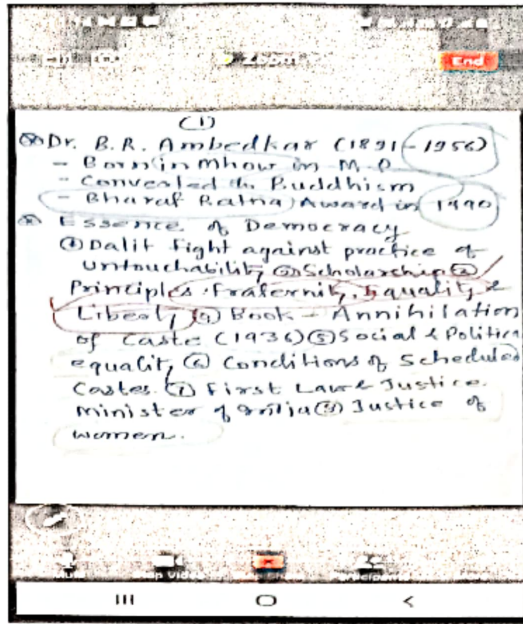 Zoom
End
(1)
⊗ Dr. B.R. Ambedkar (1891-1956)
- Born in Mhow in M.P
- Converted to Buddhism
- Bharat Ratna Award in 1990
⊗ Essence of Democracy
① Dalit fight against practice of
Untouchability ② Scholarship ③
Principles: Fraternity, Equality &
Liberty ④ Book - Annihilation
of Caste (1936) ⑤ Social & Political
equality ⑥ Conditions of Scheduled
Castes. ⑦ First Law & Justice.
Minister of India ⑧ Justice of
women.
Participants